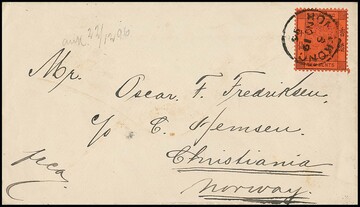 ank 22/12 96
Mr.
Oscar. F. Fredriksen.
c/o C. Hemsen.
Christiania
Norway.